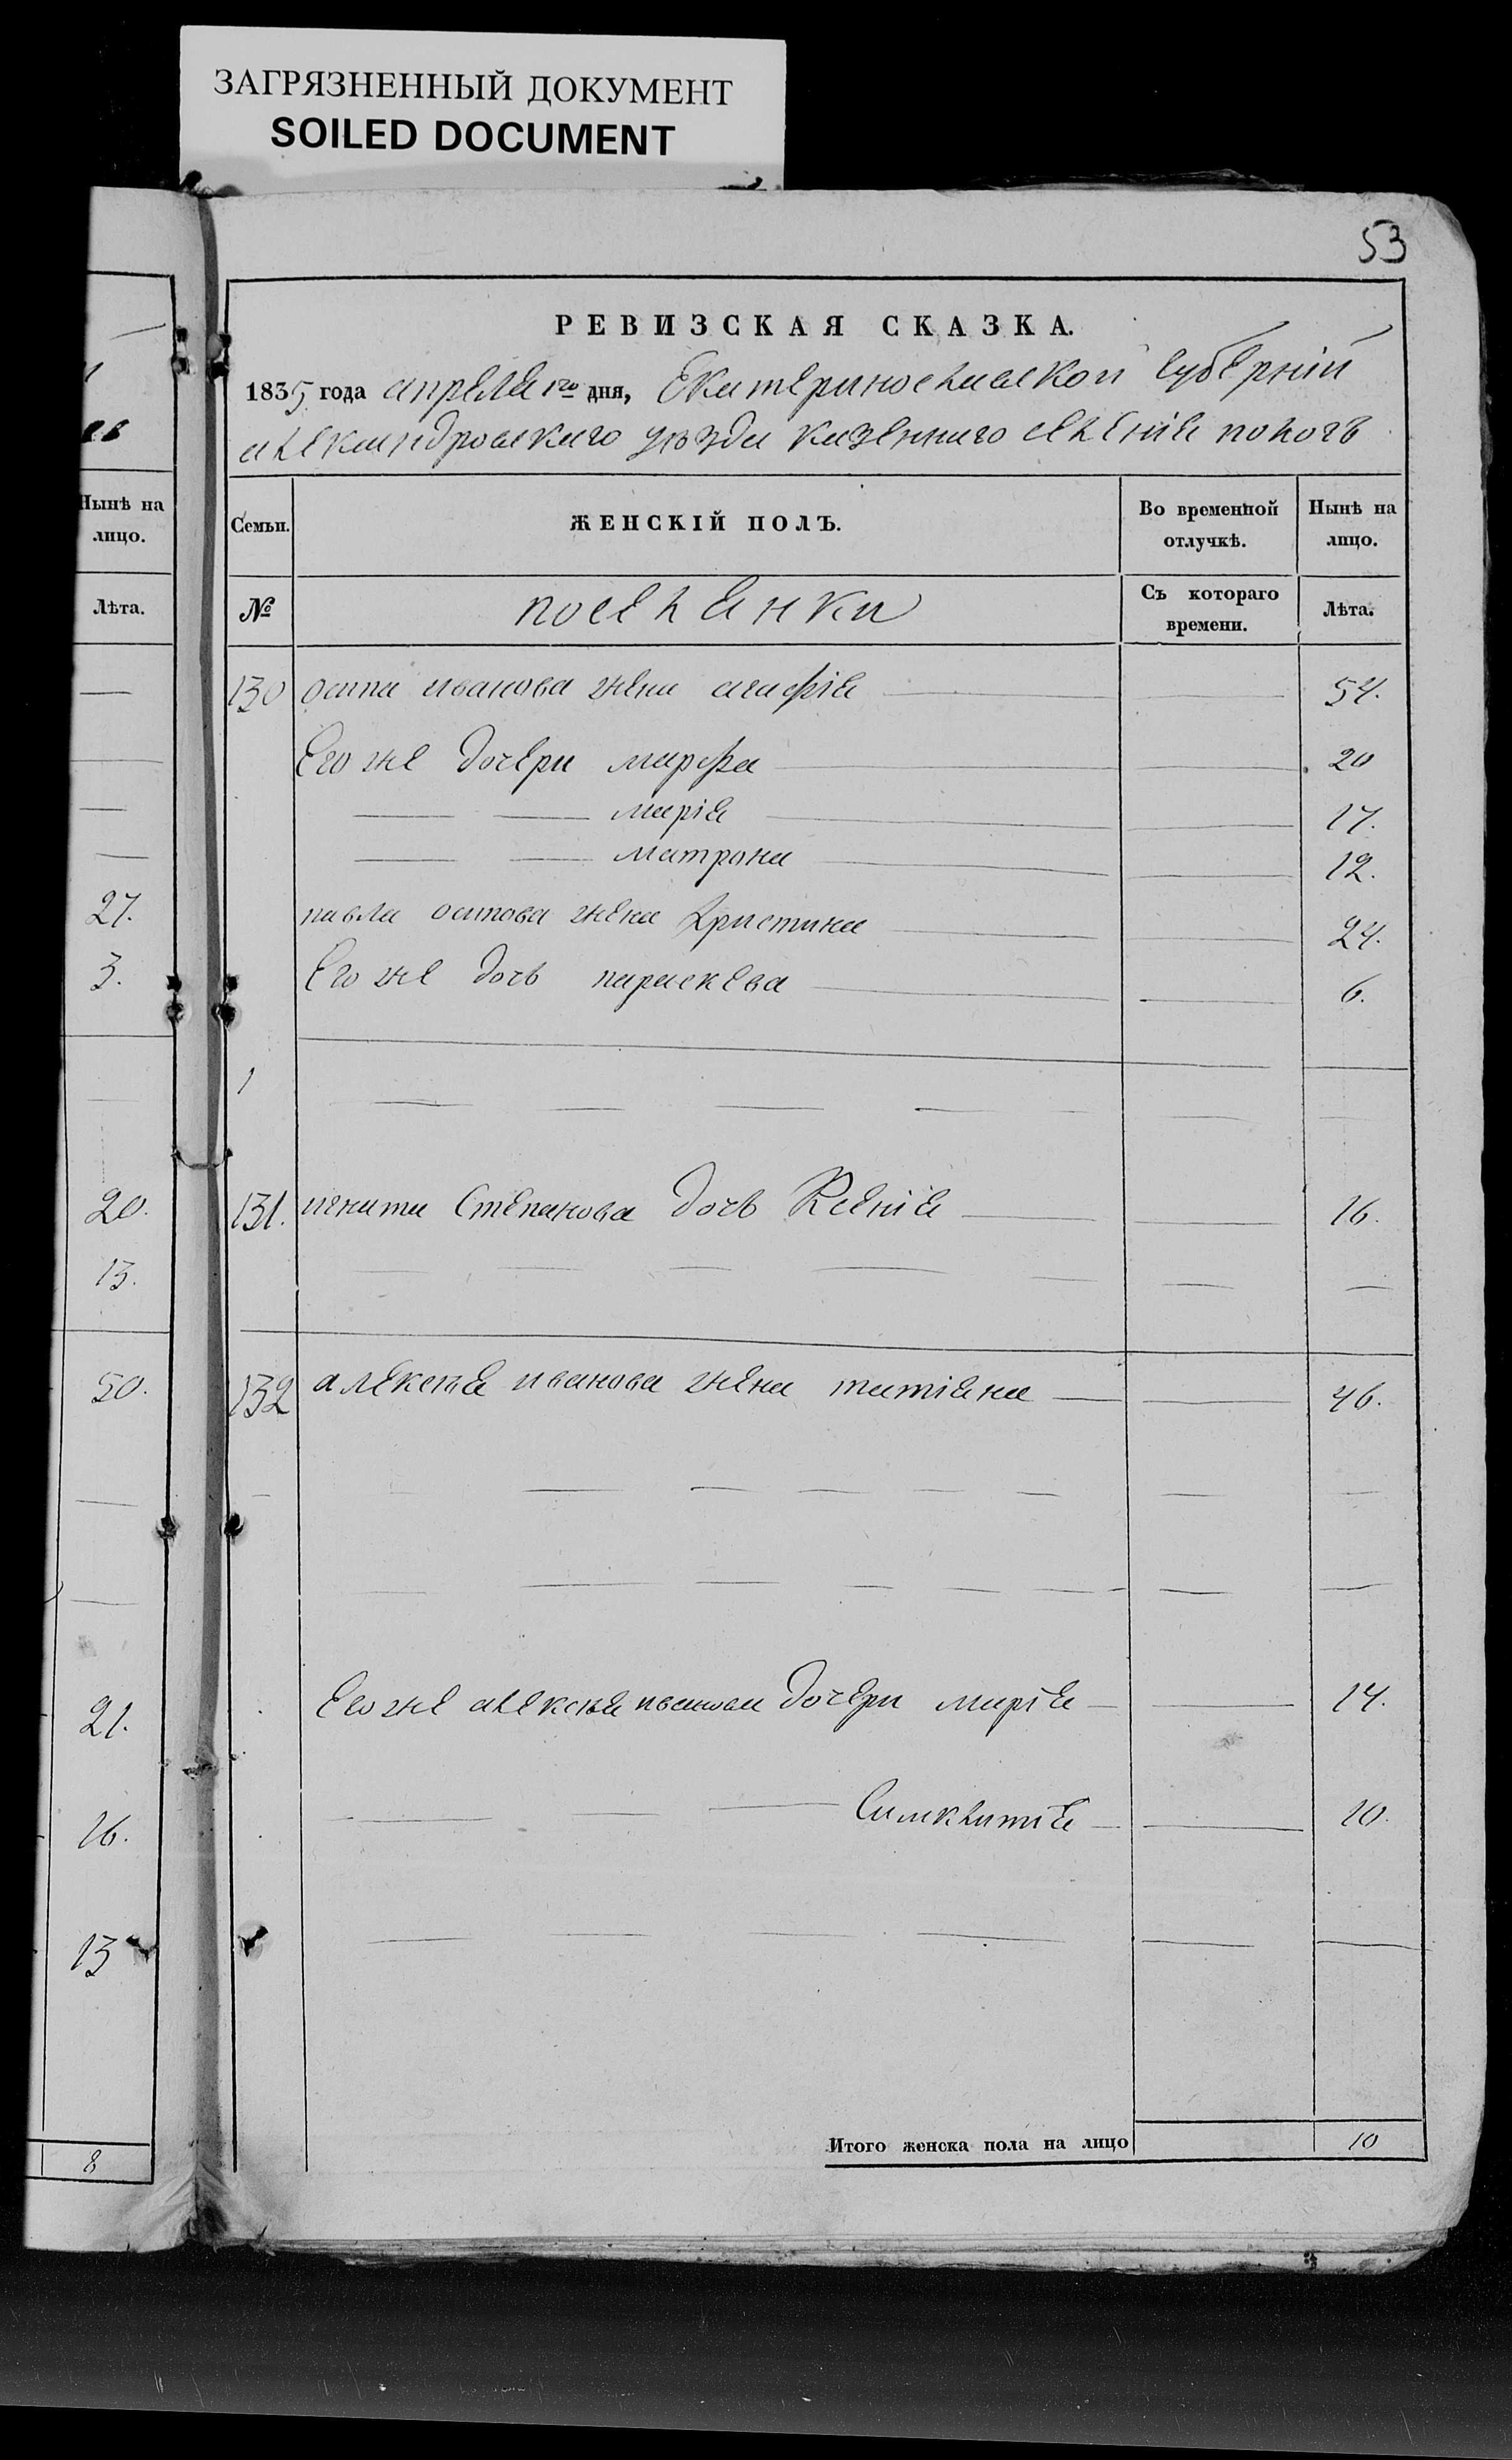 ЗАГРЯЗНЕННЫЙ ДОКУМЕНТ
SOILED DOCUMENT
53
РЕВИЗСКАЯ СКАЗКА.
1835 года апреля 1го дня, Екатеринославской губернии
александровскаго уѣзда казеннаго селения пологъ
Нынѣ на
лицо.
Лѣта.
27.
3.
20.
13.
50.
21.
16.
13
8
Семьи. ЖЕНСКІЙ ПОЛЪ. Во временной отлучкѣ. Нынѣ на лицо.
№ поселянки Съ котораго времени. Лѣта.
130 осипа иванова жена агафія 54.
Его же дочери марфа 20
марія 17.
матрона 12.
павла осипова жена христина 24.
Его же дочь параскева 6.
131. игната Степанова дочь Ксенія 16.
132 алексѣя иванова жена татіяна 46.
Его же алексѣя иванова дочери марія 14.
10.
Итого женска пола на лицо 10